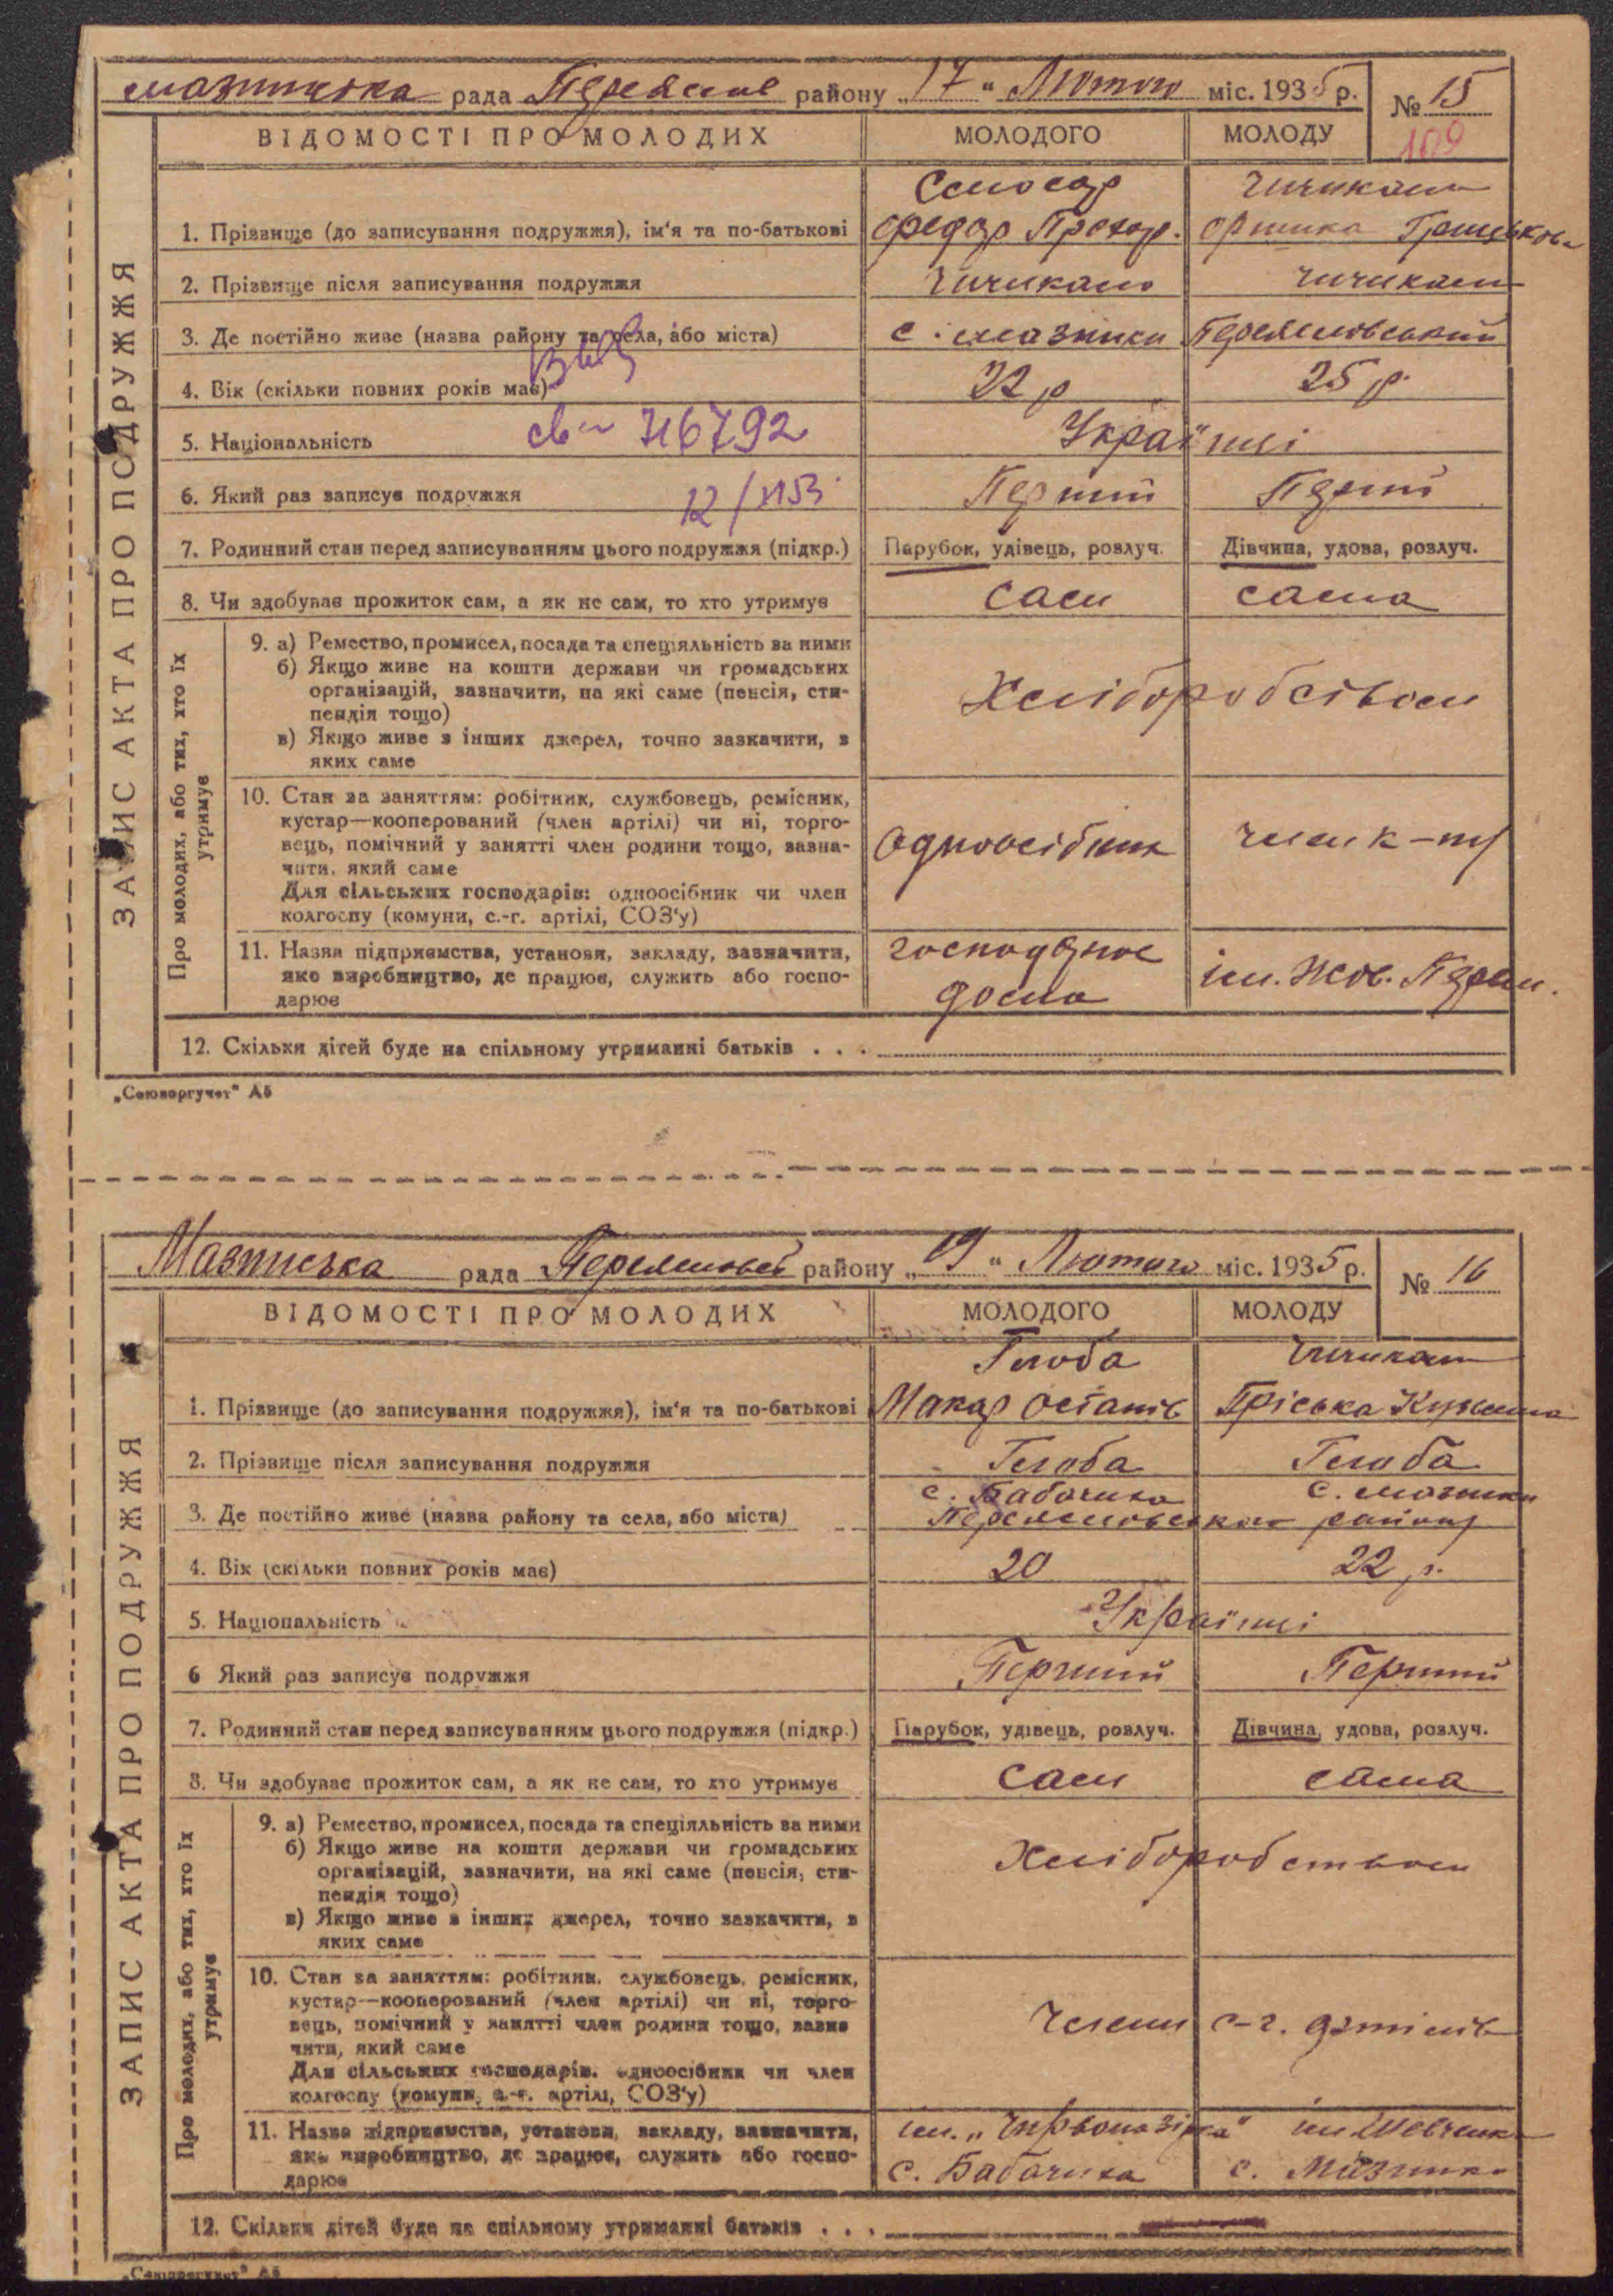 Мазинська рада Переяслів району „17“ Лютого міс. 1935 р. № 15
109
ВІДОМОСТІ ПРО МОЛОДИХ МОЛОДОГО МОЛОДУ
ЗАПИС АКТА ПРО ПОДРУЖЖЯ
Слюсар Чичикало
1. Прізвище (до записування подружжя), ім'я та по-батькові Федор Прохор. Грицьков.
2. Прізвище після записування подружжя Чичикало Чичикало
3. Де постійно живе (назва району та села, або міста) с. Мазинки Переяславський
4. Вік (скільки повних років має) 22 р 25 р.
5. Національність св 716792 Українці
6. Який раз записує подружжя Перший Перший
7. Родинний стан перед записуванням цього подружжя (підкр.) Парубок, удівець, розлуч. Дівчина, удова, розлуч.
8. Чи здобуває прожиток сам, а як не сам, то хто утримує сам сама
Про молодих, або тих, хто їх утримує
9. а) Ремество, промисел, посада та спеціяльність за ними
б) Якщо живе на кошти держави чи громадських
організацій, зазначити, на які саме (пенсія, сти-
пендія тощо)
Хліборобством
в) Якщо живе з інших джерел, точно зазначити, з
яких саме
10. Стан за заняттям: робітник, службовець, ремісник,
кустар—кооперований (член артілі) чи ні, торго-
вець, помічний у занятті член родини тощо, зазна-
чити, який саме
Одноосібник член к-пу
Для сільських господарів: одноосібник чи член
колгоспу (комуни, с.-г. артілі, СОЗ'у)
11. Назва підприємства, установи, закладу, зазначити,
яке виробництво, де працює, служить або госпо-
дарює
дома ім. Жов.
12. Скільки дітей буде на спільному утриманні батьків . . .
„Союзоргучет“ А5
Мазинська рада Переяслівськ району „19“ Лютого міс. 1935 р. № 16
ВІДОМОСТІ ПРО МОЛОДИХ МОЛОДОГО МОЛОДУ
ЗАПИС АКТА ПРО ПОДРУЖЖЯ
Глоба Чичикало
1. Прізвище (до записування подружжя), ім'я та по-батькові Макар Остапів Пріська Кузьмівна
2. Прізвище після записування подружжя Глоба Глоба
с. Бабачиха с. Мазинки
3. Де постійно живе (назва району та села, або міста) Переяславського району
4. Вік (скільки повних років має) 20 22 р.
5. Національність Українці
6 Який раз записує подружжя Перший Перший
7. Родинний стан перед записуванням цього подружжя (підкр.) Парубок, удівець, розлуч. Дівчина, удова, розлуч.
8. Чи здобуває прожиток сам, а як не сам, то хто утримує сам сама
Про молодих, або тих, хто їх утримує
9. а) Ремество, промисел, посада та спеціяльність за ними
б) Якщо живе на кошти держави чи громадських
організацій, зазначити, на які саме (пенсія, сти-
пендія тощо)
Хліборобством
в) Якщо живе з інших джерел, точно зазначити, з
яких саме
10. Стан за заняттям: робітник, службовець, ремісник,
кустар—кооперований (член артілі) чи ні, торго-
вець, помічний у занятті член родини тощо, зазна-
чити, який саме
Члени с-г. артілів
Для сільських господарів: одноосібник чи член
колгоспу (комуни, с.-г. артілі, СОЗ'у)
11. Назва підприємства, установи, закладу, зазначити, ім. „Червона зірка“ ім Шевченка
яке виробництво, де працює, служить або госпо-
дарює с. Бабачиха с. Мазинки
12. Скільки дітей буде на спільному утриманні батьків . . .
„Союзоргучет“ А5